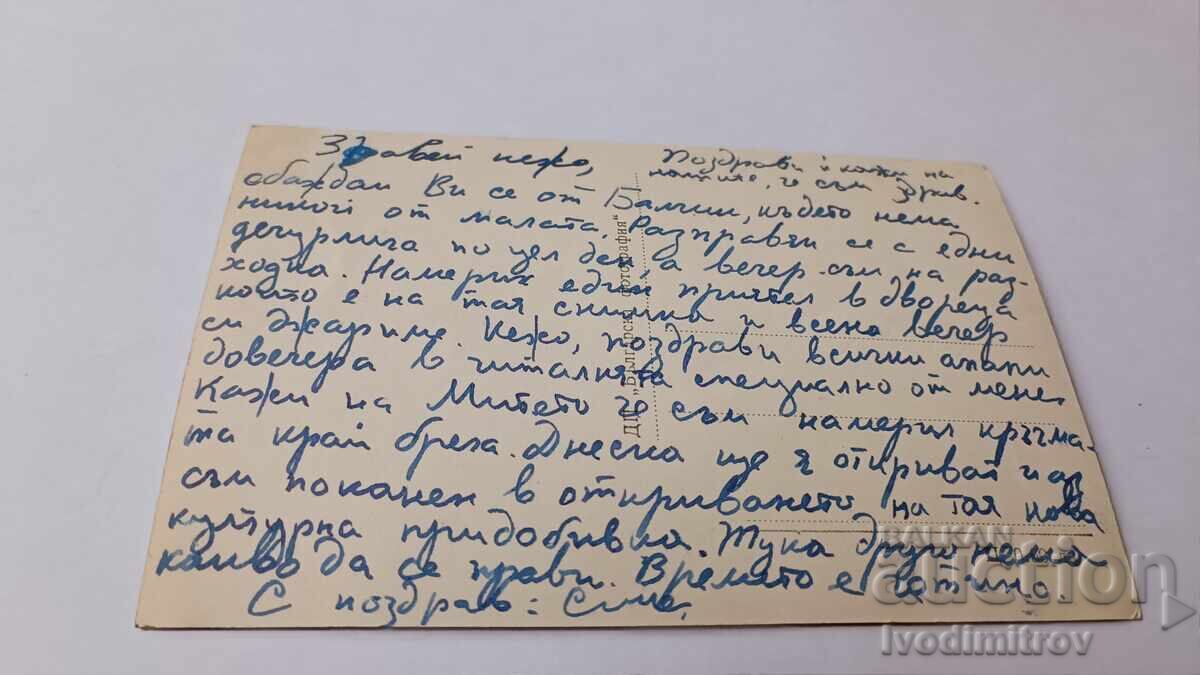 Здравей кежо,
Поздрави и кажи на
, че съм здрав.
обаждам Ви се от Балчик, където нема
никой от малата. Разправям се с едни
дечурлига по цел ден, а вечер съм на раз-
ходка. Намерих един приятел в двореца
който е на тая снимка и всека вечер
си . Кежо, поздрави всички
довечера в читалнята специално от мене.
Кажи на Митето че съм намерил кръчма-
та край брега. Днеска ще я откриват и аз
съм поканен в откриването на тая нова
културна придобивка. Тука друго нема
какво да се прави. Времето е .
С поздрав:
ДП „Българска фотография“
BALKAN
auction
Ivodimitrov